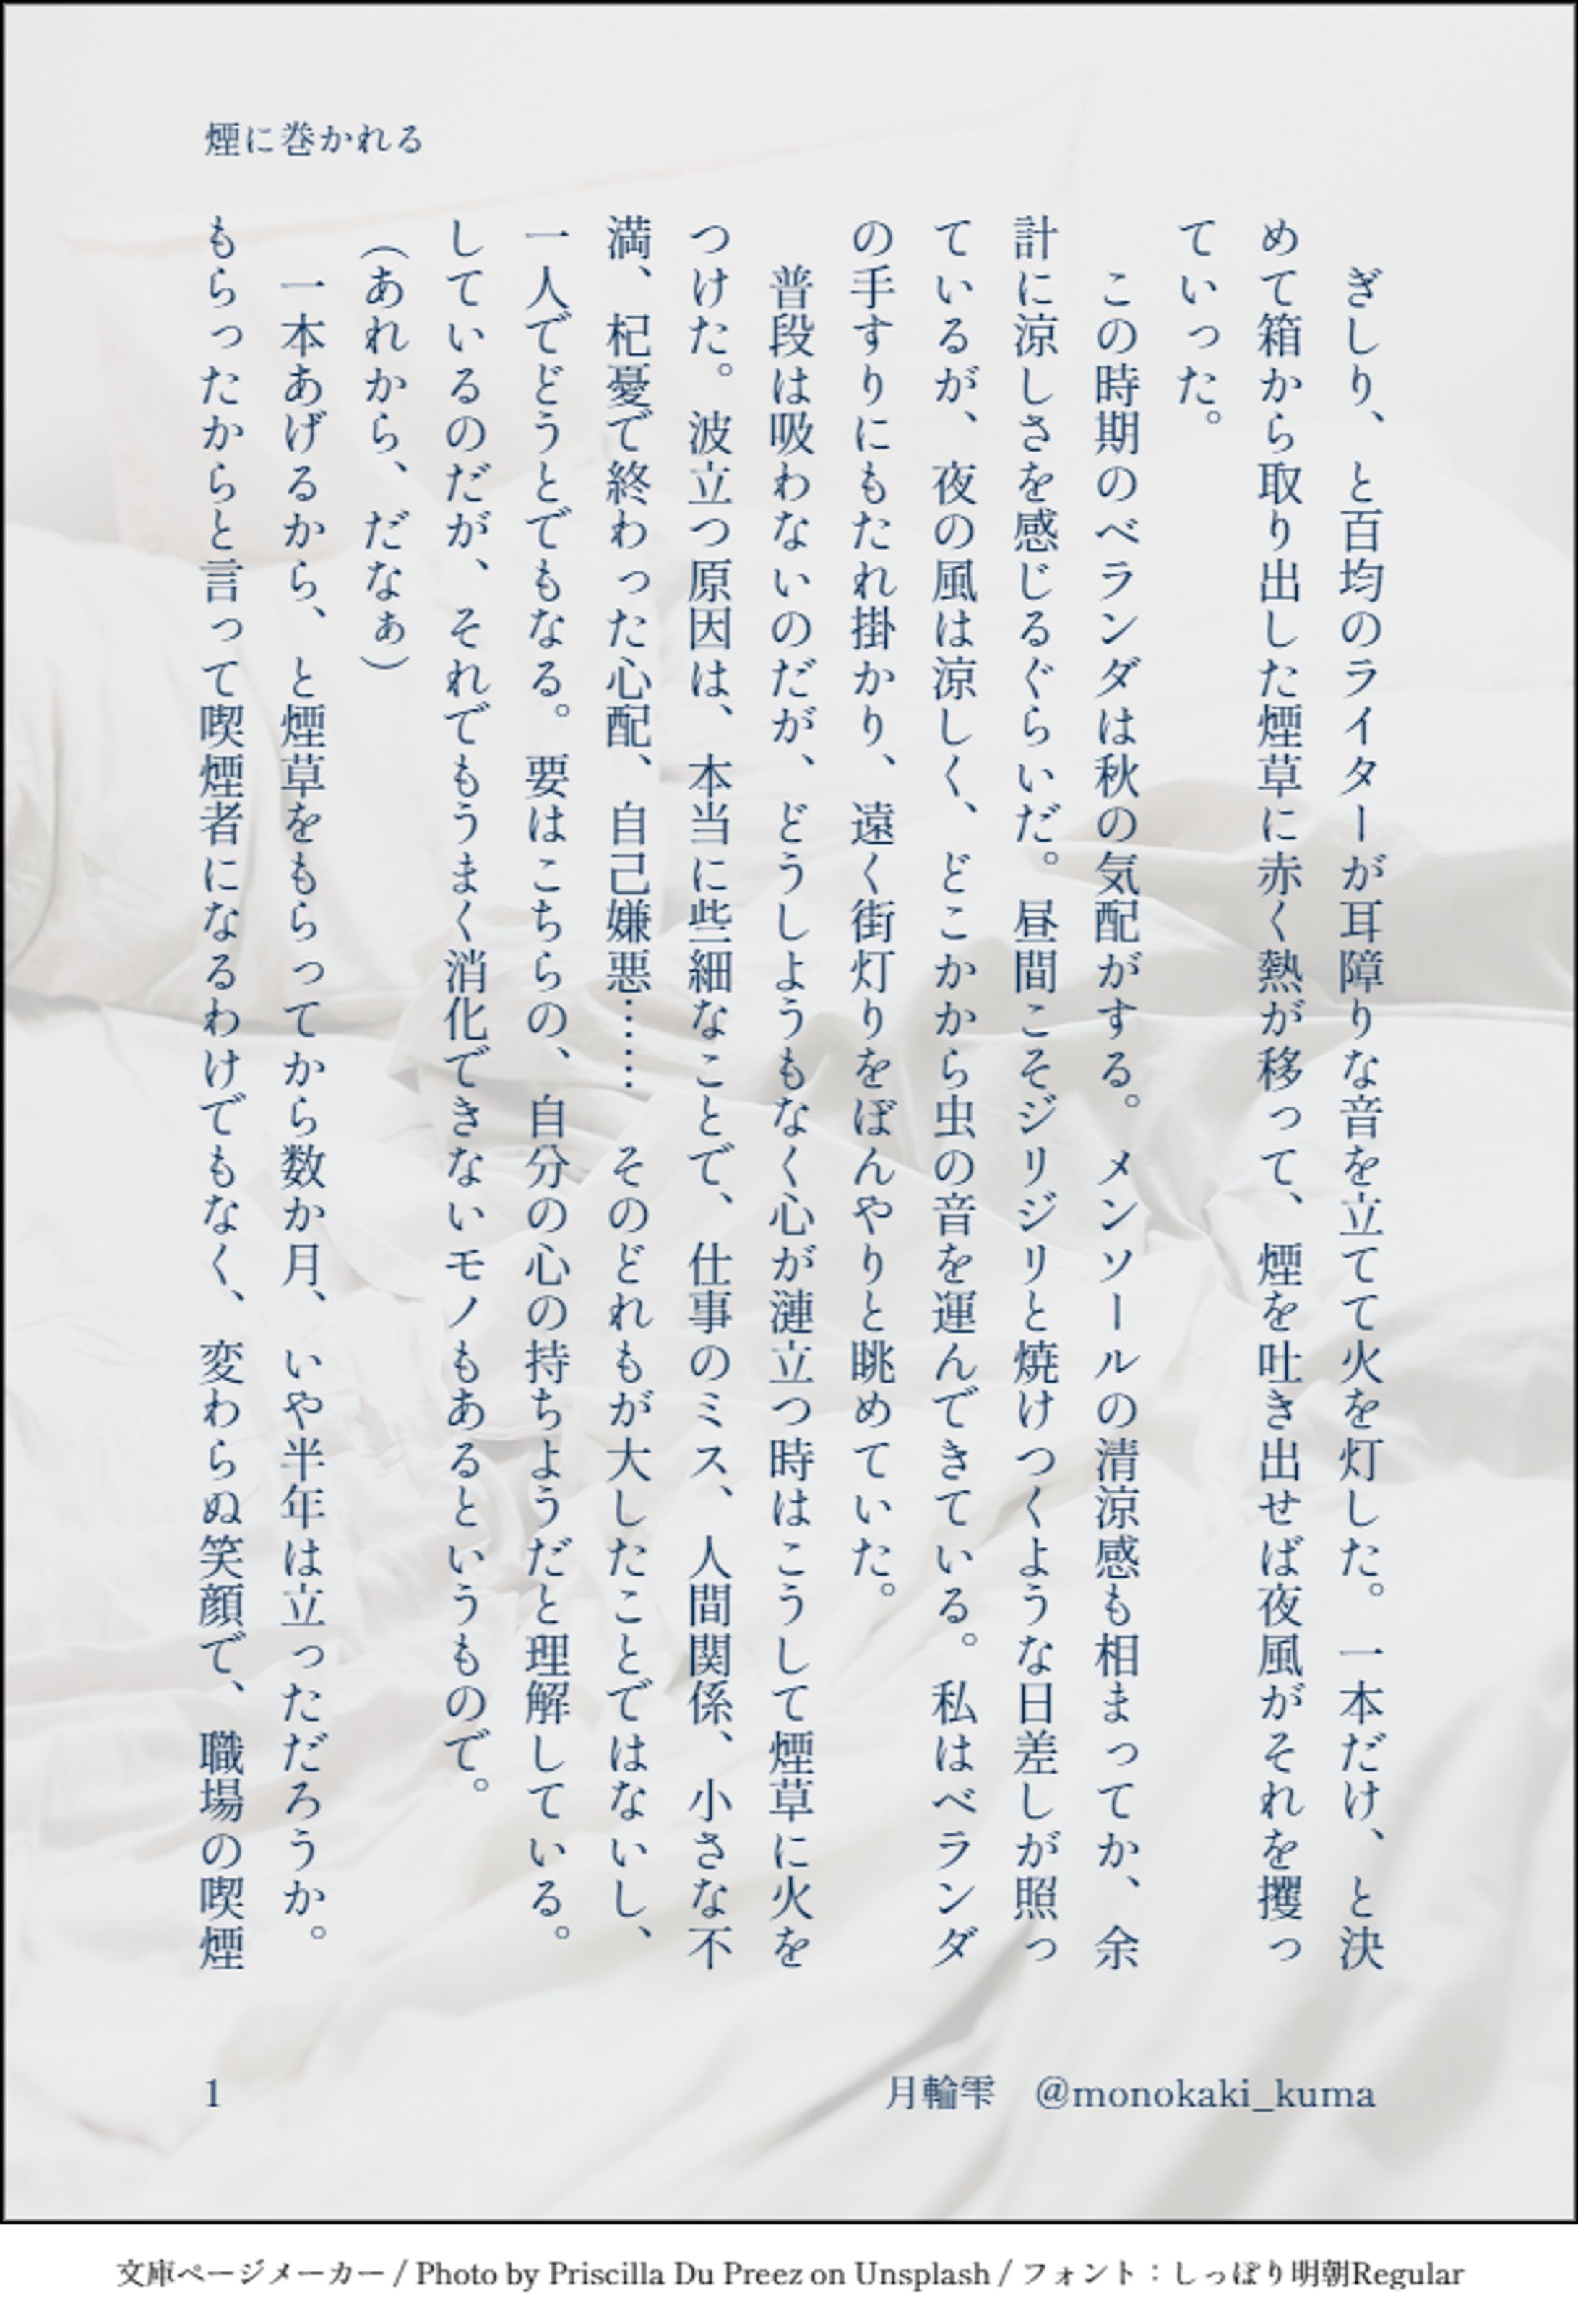 煙に巻かれる
　ぎしり、と百均のライターが耳障りな音を立てて火を灯した。一本だけ、と決
めて箱から取り出した煙草に赤く熱が移って、煙を吐き出せば夜風がそれを攫っ
ていった。
　この時期のベランダは秋の気配がする。メンソールの清涼感も相まってか、余
計に涼しさを感じるぐらいだ。昼間こそジリジリと焼けつくような日差しが照っ
ているが、夜の風は涼しく、どこかから虫の音を運んできている。私はベランダ
の手すりにもたれ掛かり、遠く街灯りをぼんやりと眺めていた。
　普段は吸わないのだが、どうしようもなく心が漣立つ時はこうして煙草に火を
つけた。波立つ原因は、本当に些細なことで、仕事のミス、人間関係、小さな不
満、杞憂で終わった心配、自己嫌悪……　そのどれもが大したことではないし、
一人でどうとでもなる。要はこちらの、自分の心の持ちようだと理解している。
しているのだが、それでもうまく消化できないモノもあるというもので。
（あれから、だなぁ）
　一本あげるから、と煙草をもらってから数か月、いや半年は立っただろうか。
もらったからと言って喫煙者になるわけでもなく、変わらぬ笑顔で、職場の喫煙
月輪雫　@monokaki_kuma
1
文庫ページメーカー / Photo by Priscilla Du Preez on Unsplash / フォント：しっぽり明朝Regular